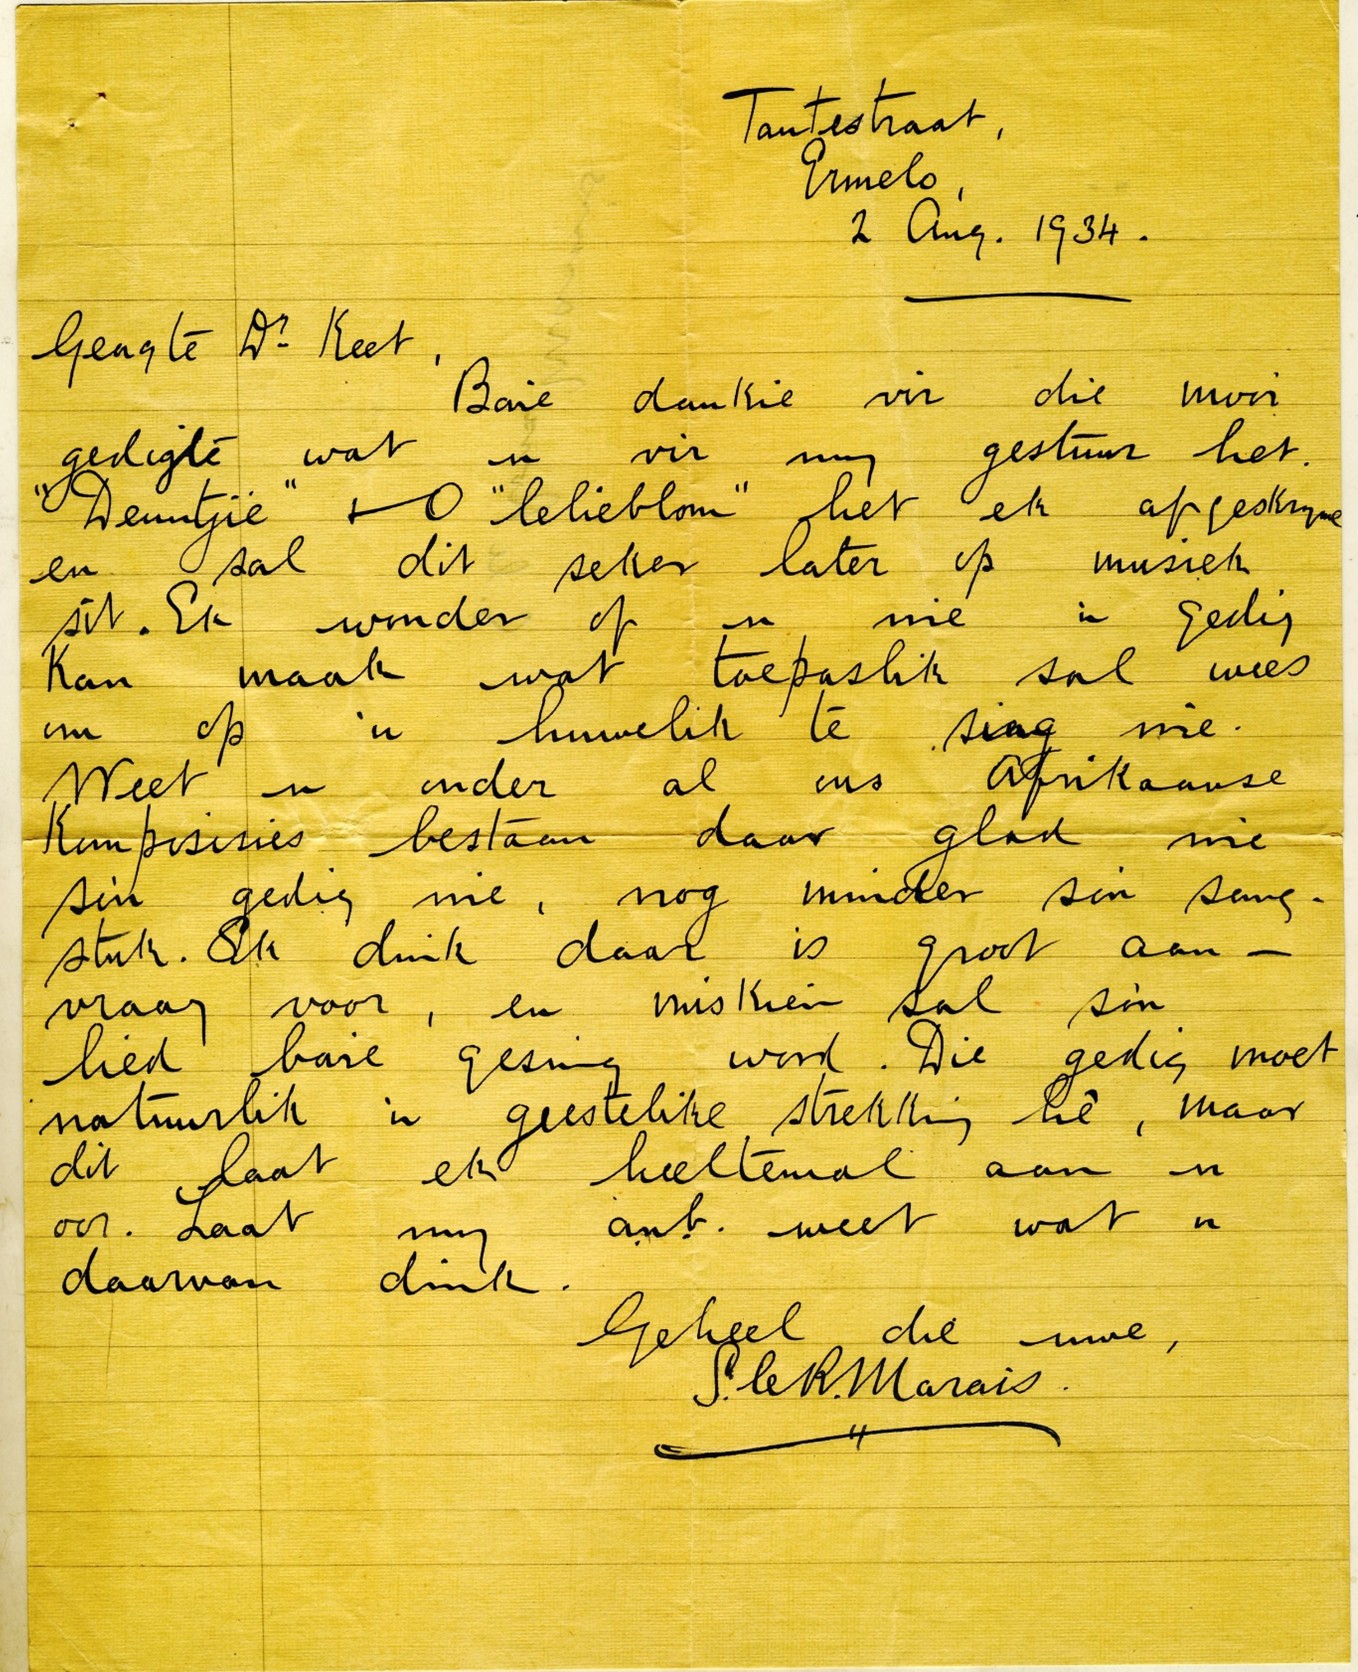 Tautestraat,
Ermelo,
2 Aug. 1934.
Geagte Dr Keet,
Baie dankie vir die mooi
gedigte wat u vir my gestuur het.
"Deuntjie" "lelieblom" het ek afgeskrywe
en sal dit seker later op musiek
sit. Ek wonder of u nie 'n gedig
kan maak wat toepaslik sal wees
om op 'n huwelik te sing nie.
Weet u onder al ons Afrikaanse
Komposisies bestaan daar glad nie
so'n gedig nie, nog minder so'n sang-
stuk. Ek dink daar is groot aan-
vraag voor, en miskien sal so'n
lied baie gesing word. Die gedig moet
natuurlik 'n geestelike strekking hê, maar
dit laat ek heeltemal aan u
oor. Laat my ant. weet wat u
daarvan dink.
Geheel die uwe,
S. le R. Marais.